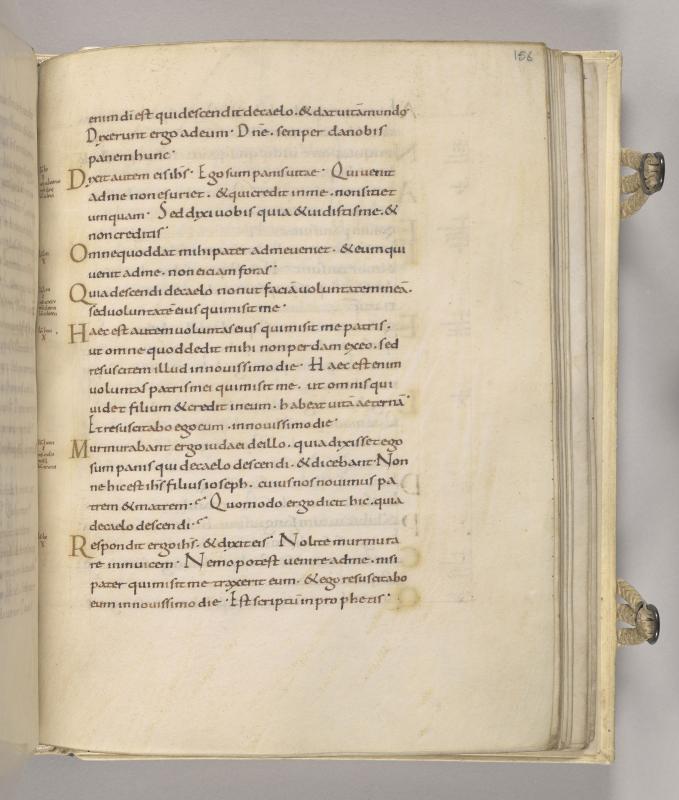 156
enim di est qui descendit decaelo. & dat uitam mundo
Dixerunt ergo adeum. Dne. semper danobis
panem hunc.
Dixit autem eis ihs. Ego sum panis uitae. Qui uenit
adme non esuriet. & qui credit inme. non sitiet
umquam. Sed dixi uobis quia & uidistis me. &
non creditis.
Omne quod dat mihi pater adme ueniet. & eum qui
uenit adme. non eiciam foras.
Quia descendi decaelo non ut faciā uoluntatem meā.
sed uoluntatē eius qui misit me.
Haec est autem uoluntas eius qui misit me patris.
ut omne quod dedit mihi non perdam exeo. sed
resuscitem illud in nouissimo die. Haec est enim
uoluntas patris mei qui misit me. ut omnis qui
uidet filium & credit in eum. habeat uitā aeternā.
Et resuscitabo ego eum. in nouissimo die.
Murmurabant ergo iudaei deillo. quia dixisset ego
sum panis qui decaelo descendi. & dicebant. Non
ne hic est ihs filius ioseph. cuius nos nouimus pa
trem & matrem. Quomodo ergo dicit hic. quia
decaelo descendi.
Respondit ergo ihs. & dixit eis. Nolite murmura
re in inuicem. Nemo potest uenire adme. nisi
pater qui misit me traxerit eum. & ego resuscitabo
eum in nouissimo die. Est scriptū in prophetis.